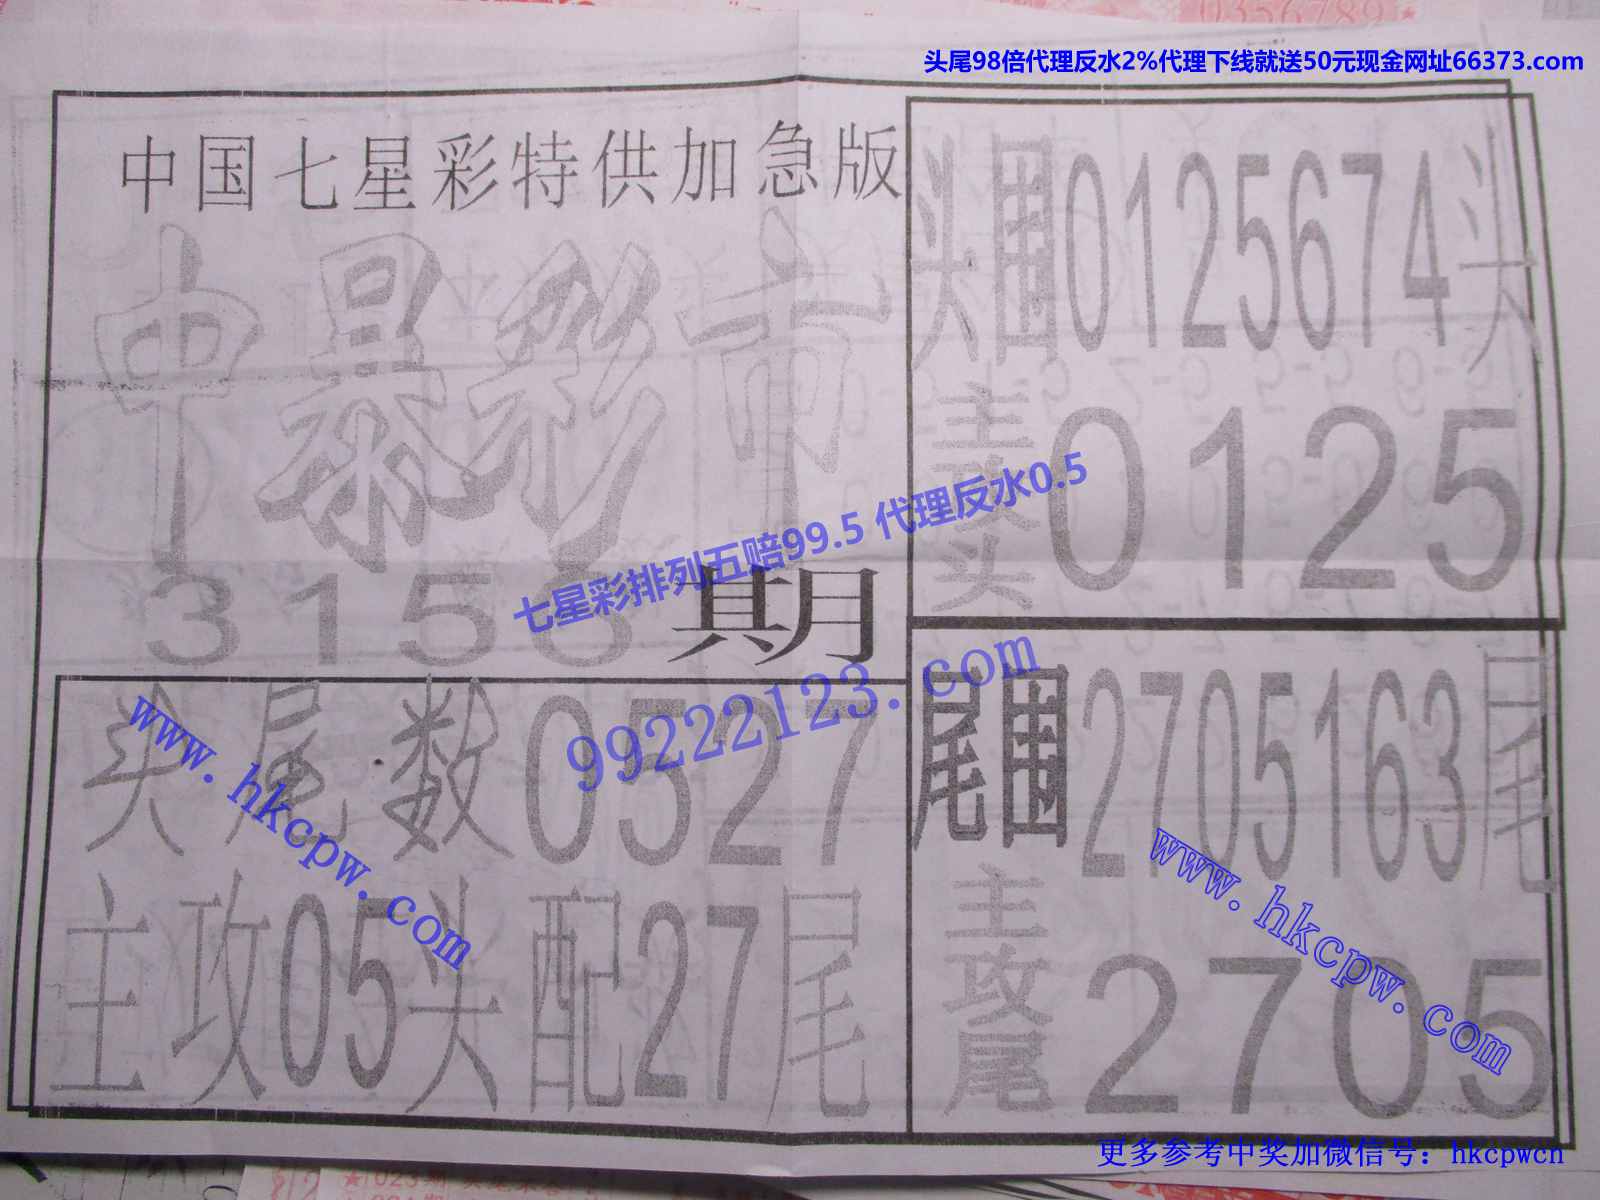 头尾98倍代理反水2%代理下线就送50元现金网址66373.com
中国七星彩特供加急版
中
彩市
315
期
七星彩排列五赔99.5 代理反水0.5
99222123.com
头尾数0527
主攻05头配27尾
www.hkcpw.com
头围0125674头
主攻头
0125
尾围2705163尾
主攻尾
2705
www.hkcpw.com
更多参考中奖加微信号：hkcpwcn
0356789
023期